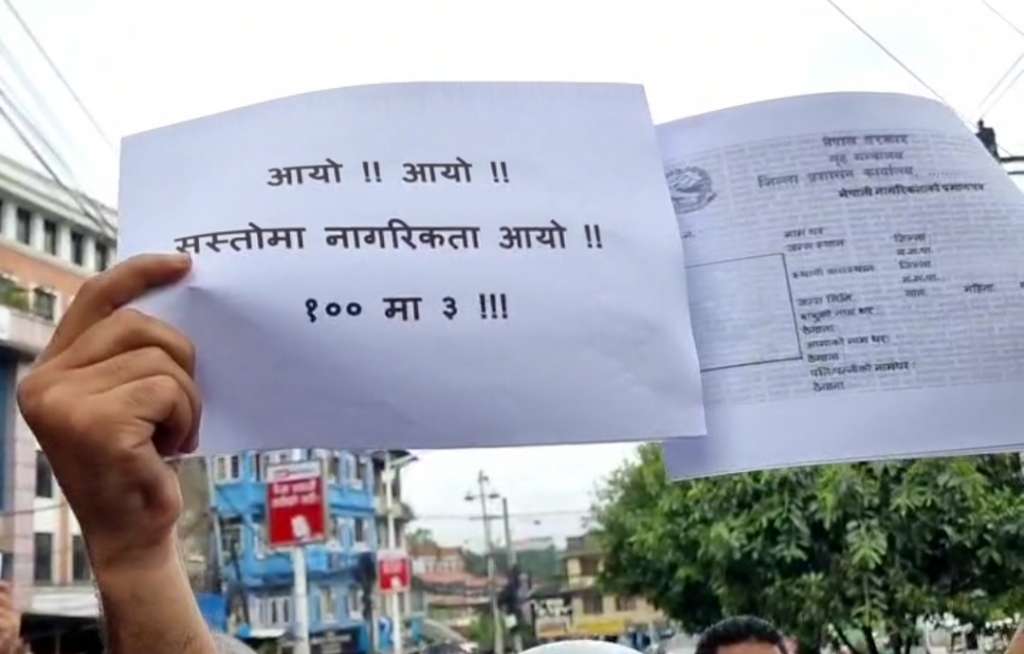 आयो !! आयो !!
सस्तोमा नागरिकता आयो !!
१०० मा ३ !!!
नेपाल सरकार
गृह मन्त्रालय
जिल्ला प्रशासन कार्यालय, ........
नेपाली नागरिकताको प्रमाणपत्र
नाम थर
जन्म स्थान जिल्ला
स्थायी वासस्थान जिल्ला
जन्म मिति साल महिना
बाबुको नाम थर
ठेगाना
आमाको नाम थर
ठेगाना
पति/पत्नीको नामथर
ठेगाना